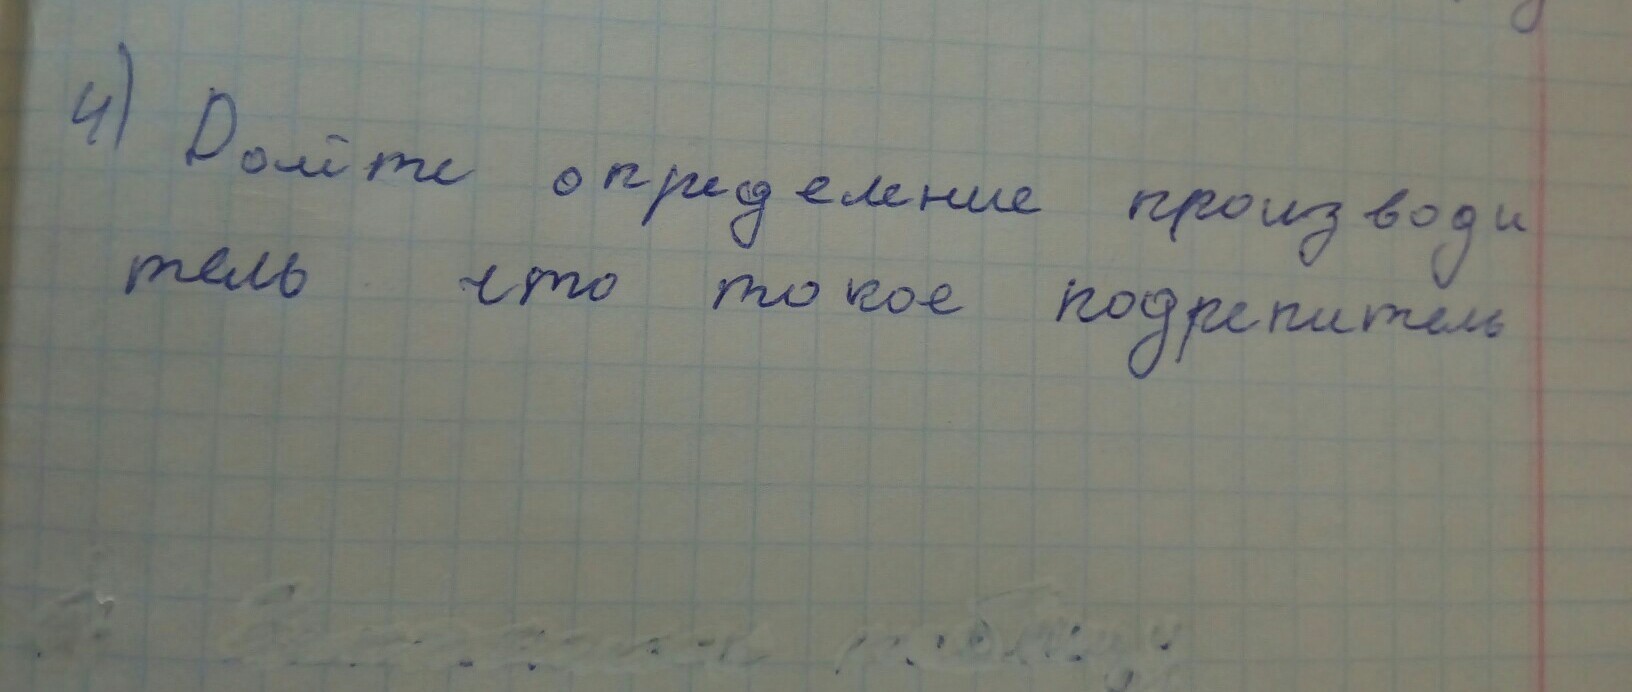 4) Дайте определение производи
тель что такое кодрепитель